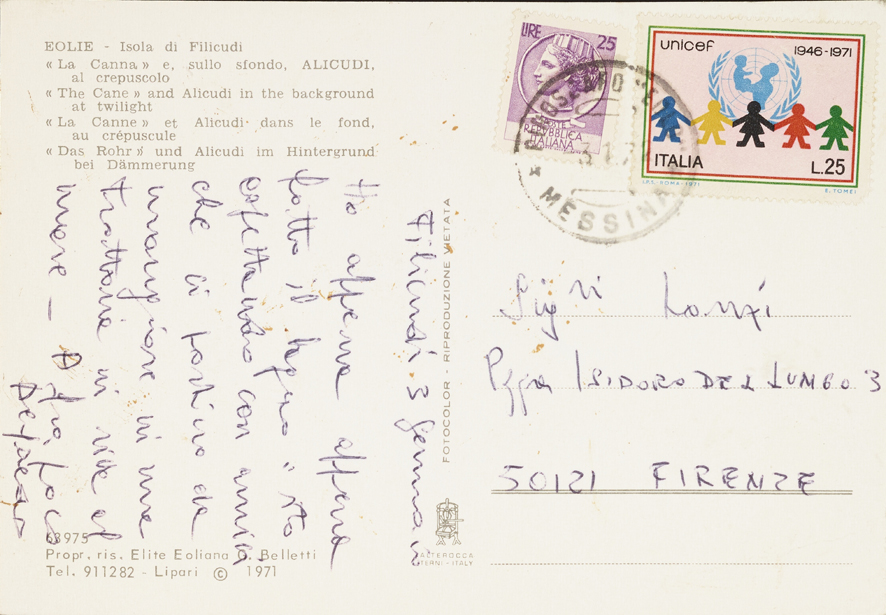 EOLIE - Isola di Filicudi
« La Canna » e, sullo sfondo, ALICUDI,
al crepuscolo
« The Cane » and Alicudi in the background
at twilight
« La Canne » et Alicudi dans le fond,
au crépuscule
« Das Rohr » und Alicudi im Hintergrund
bei Dämmerung
Filicudi 3 Gennaio
Ho appena appena
fatto il bagno e sto
aspettando con amici
che ci portino da
mangiare in una
trattoria in riva al
mare -
63975
Propr. ris. Elite Eoliana G. Belletti
Tel. 911282 - Lipari © 1971
FOTOCOLOR - RIPRODUZIONE VIETATA
ALTEROCCA
TERNI - ITALY
LIRE 25
REPVBBLICA
ITALIANA
unicef 1946-1971
ITALIA L.25
I.P.S. ROMA - 1971 E. TOMEI
MESSINA
Sigri Lonzi
Pzza ISIDORO DEL LUNGO 3
50121 FIRENZE